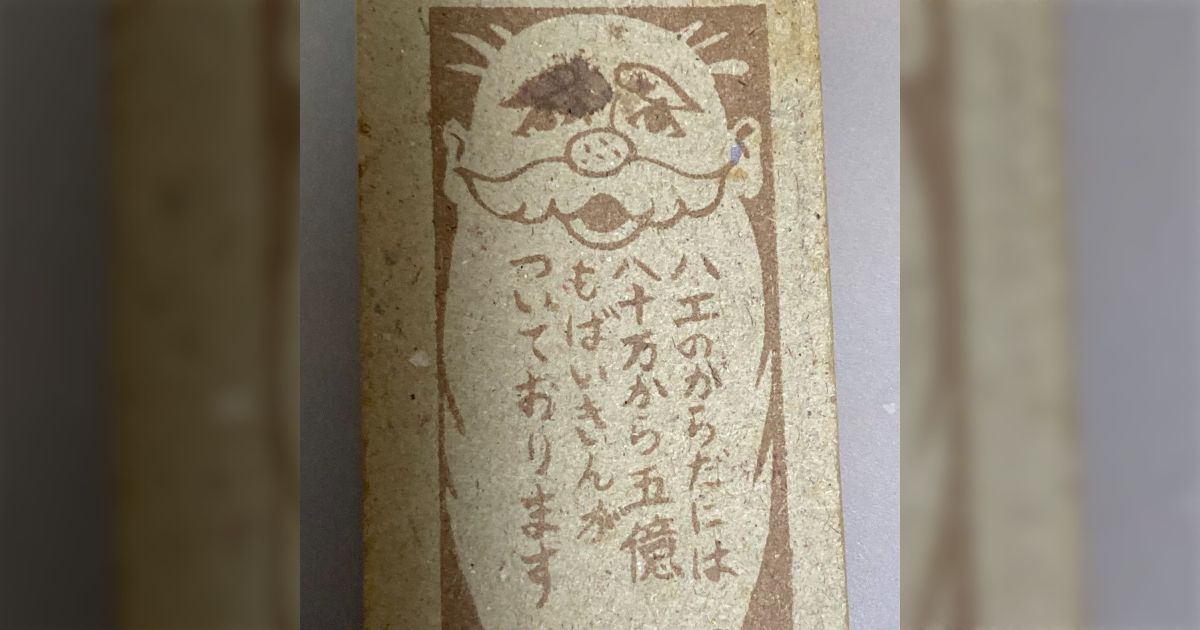 ハエのからだには
八十万から五億
もばいきんが
ついております